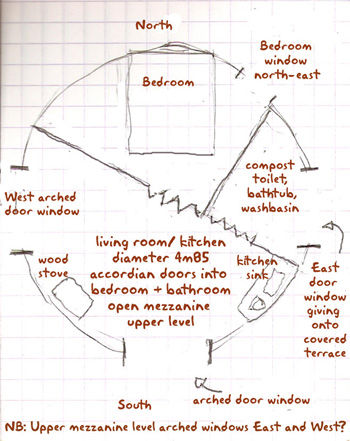 North
Bedroom
window
north-east
Bedroom
compost
toilet,
bathtub,
washbasin
West arched
door window
living room/ kitchen
diameter 4m85
accordian doors into
bedroom + bathroom
open mezzanine
upper level
wood
stove
kitchen
sink
East
door
window
giving
onto
covered
terrace
arched door window
South
NB: Upper mezzanine level arched windows East and West?